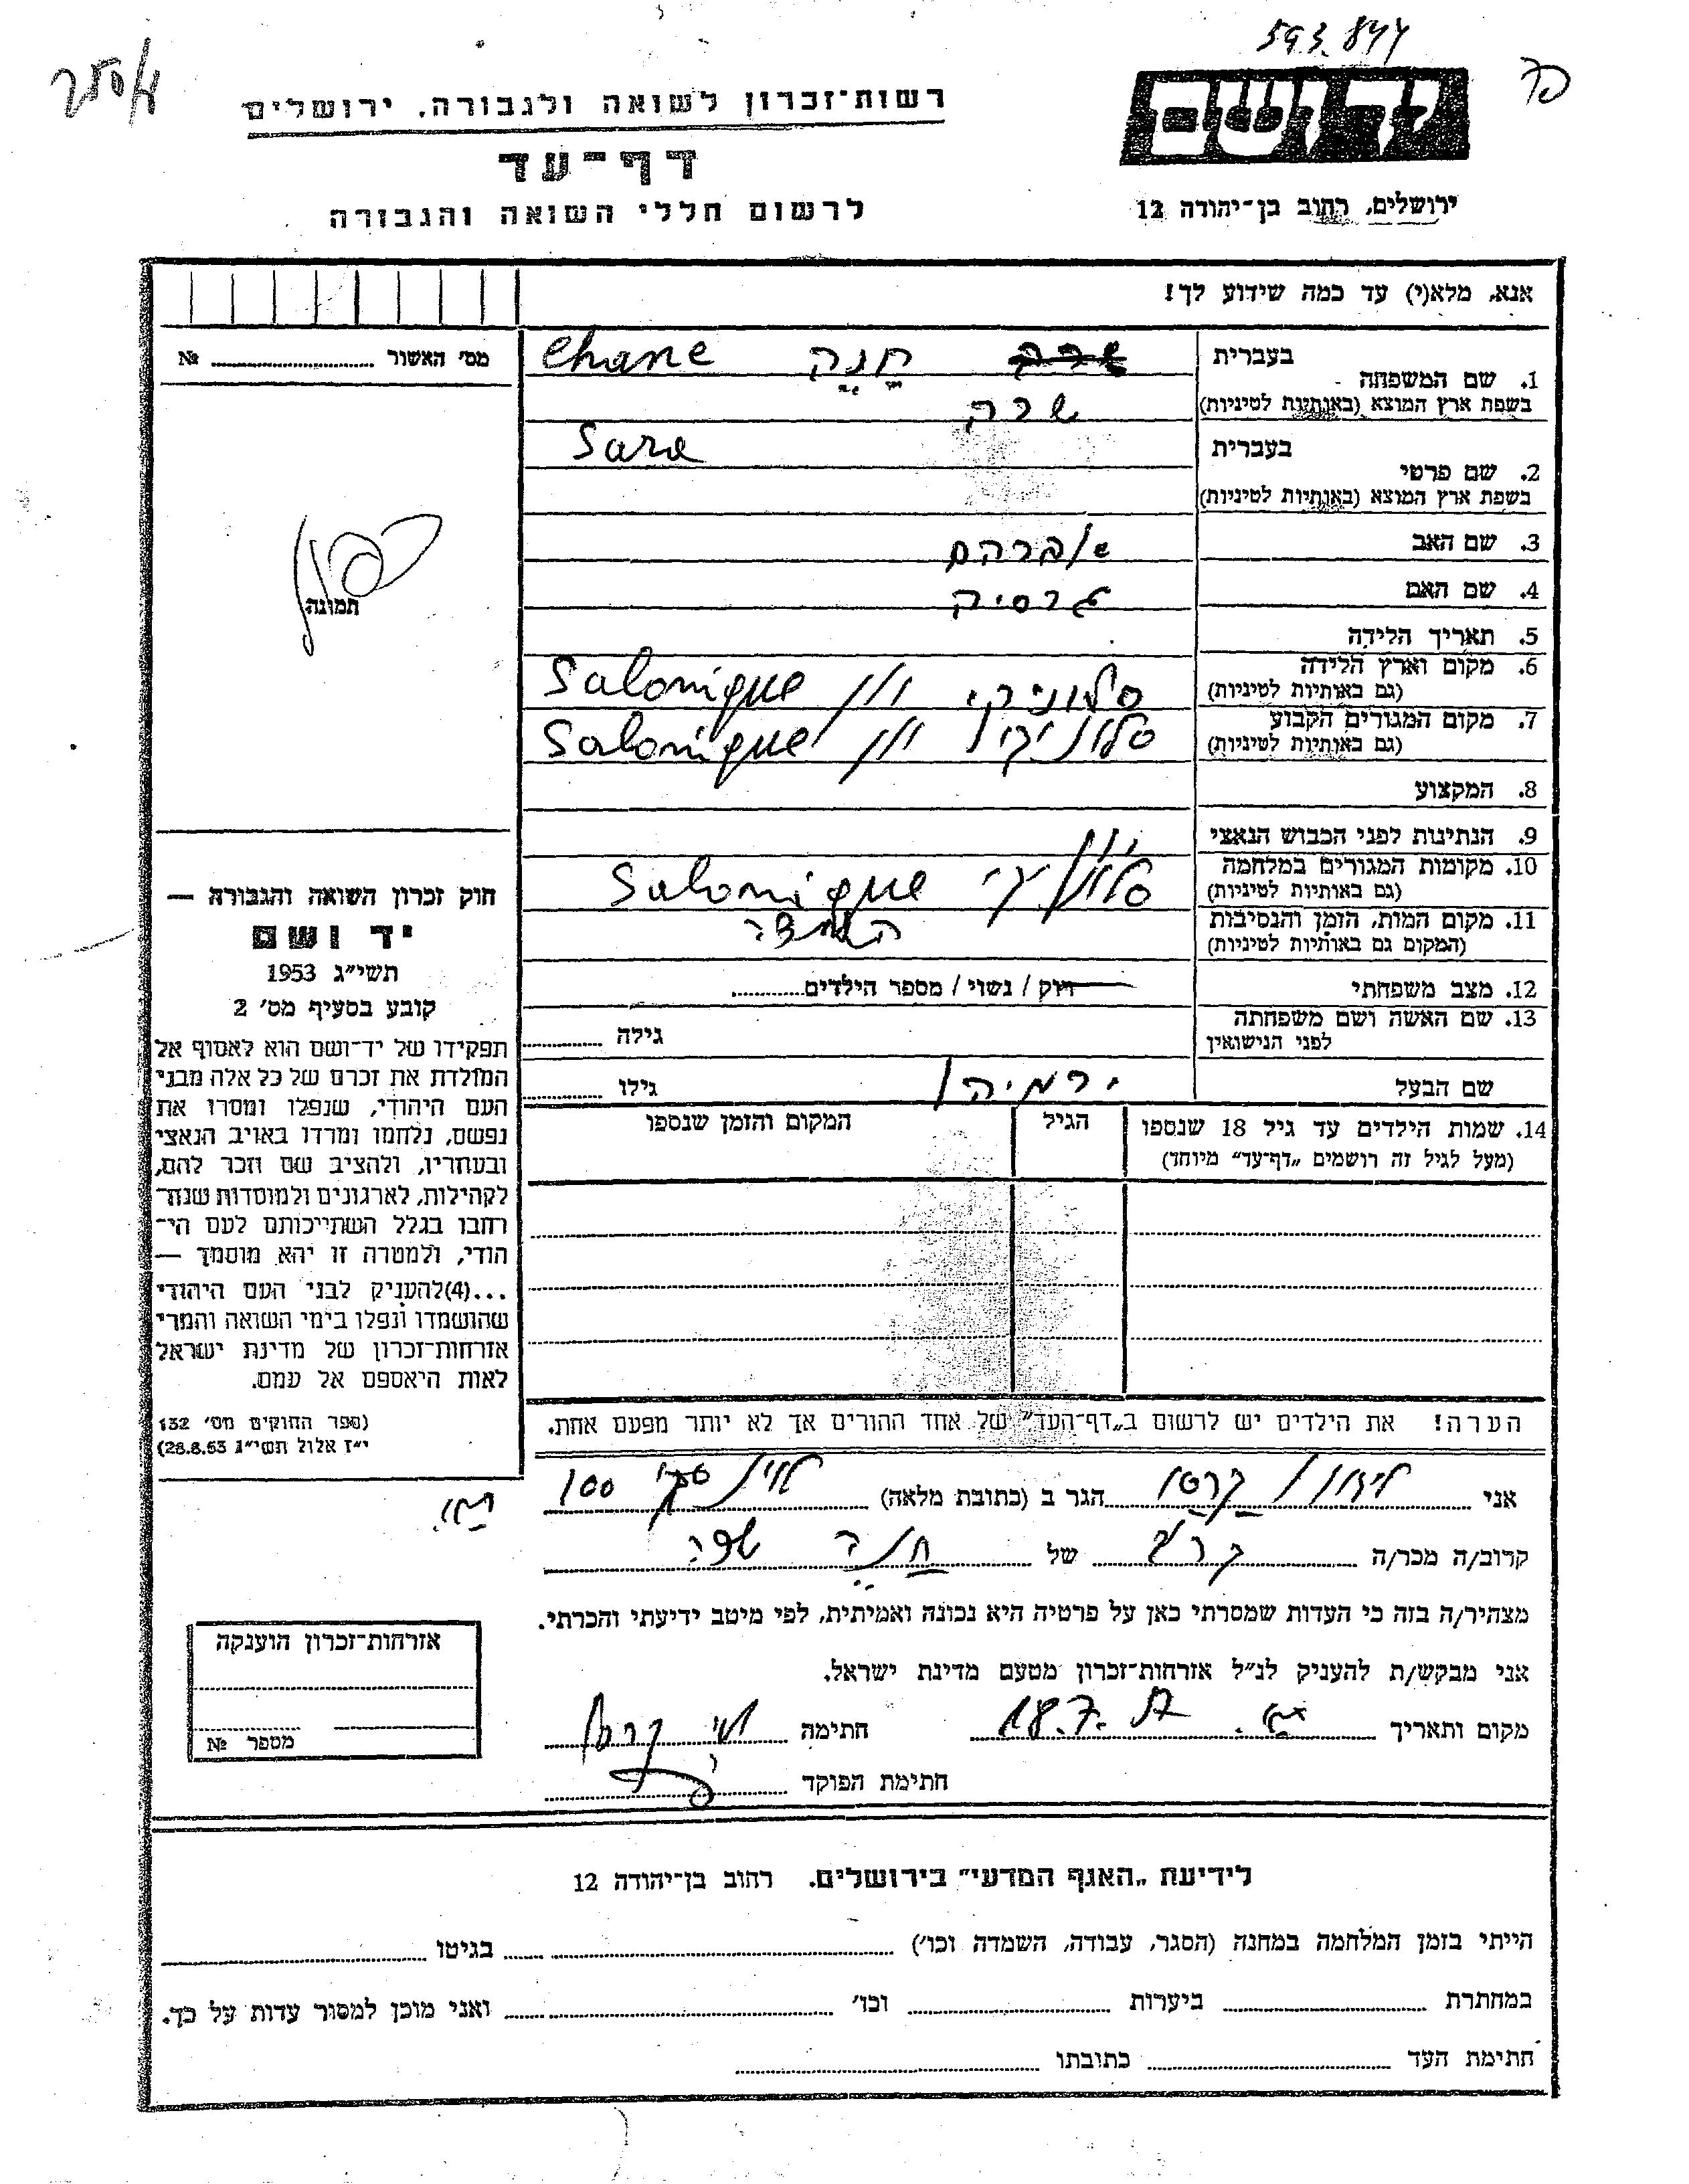 593.844
רשות־זכרון לשואה ולגבורה. ירושלים
דף־עד
לרשום חללי השואה והגבורה
יד ושם
ירושלים, רחוב בן־יהודה 12
אנא, מלא(י) עד כמה שידוע לך!
מס׳ האשור № 
בעברית חנה Chane
1. שם המשפחה
בשפת ארץ המוצא (באותיות לטיניות) שרה
בעברית Sara
2. שם פרטי
בשפת ארץ המוצא (באותיות לטיניות)
3. שם האב אברהם
4. שם האם גרסיה
5. תאריך הלידה
6. מקום וארץ הלידה סלוניקי יון Salonique
(גם באותיות לטיניות)
7. מקום המגורים הקבוע סלוניקי יון Salonique
(גם באותיות לטיניות)
8. המקצוע
9. הנתינות לפני הכבוש הנאצי יון
10. מקומות המגורים במלחמה סלוניקי Salonique
(גם באותיות לטיניות)
11. מקום המות, הזמן והנסיבות
(המקום גם באותיות לטיניות)
12. מצב משפחתי רווק / נשוי / מספר הילדים
13. שם האשה ושם משפחתה
לפני הנישואין גילה
שם הבעל ירמיהו גילו
14. שמות הילדים עד גיל 18 שנספו הגיל המקום והזמן שנספו
(מעל לגיל זה רושמים „דף־עד״ מיוחד)
הערה! את הילדים יש לרשום ב„דף־העד״ של אחד ההורים אך לא יותר מפעם אחת.
תמונה
חוק זכרון השואה והגבורה —
יד ושם
תשי״ג 1953
קובע בסעיף מס׳ 2
תפקידו של יד־ושם הוא לאסוף אל
המולדת את זכרם של כל אלה מבני
העם היהודי, שנפלו ומסרו את
נפשם, נלחמו ומרדו באויב הנאצי
ובעוזריו, ולהציב שם וזכר להם,
לקהילות, לארגונים ולמוסדות שנח־
רחבו בגלל השתייכותם לעם הי־
הודי, ולמטרה זו יהא מוסמך —
...(4)להעניק לבני העם היהודי
שהושמדו ונפלו בימי השואה והמרי
אזרחות־זכרון של מדינת ישראל
לאות היאספם אל עמם.
(ספר החוקים מס׳ 132
י״ז אלול תשי״ג 28.8.53)
אני קרסו הגר ב (כתובת מלאה) 100
קרוב/ה מכר/ה קרוב של חנה שרה
מצהיר/ה בזה כי העדות שמסרתי כאן על פרטיה היא נכונה ואמיתית, לפי מיטב ידיעתי והכרתי.
אני מבקש/ת להעניק לנ״ל אזרחות־זכרון מטעם מדינת ישראל.
מקום ותאריך 18.7. חתימה קרסו
חתימת הפוקד
אזרחות־זכרון הוענקה
מספר №
לידיעת „האגף המדעי״ בירושלים. רחוב בן־יהודה 12
הייתי בזמן המלחמה במחנה (הסגר, עבודה, השמדה וכו׳) בגיטו
במחתרת ביערות וכו׳ ואני מוכן למסור עדות על כך.
חתימת העד כתובתו